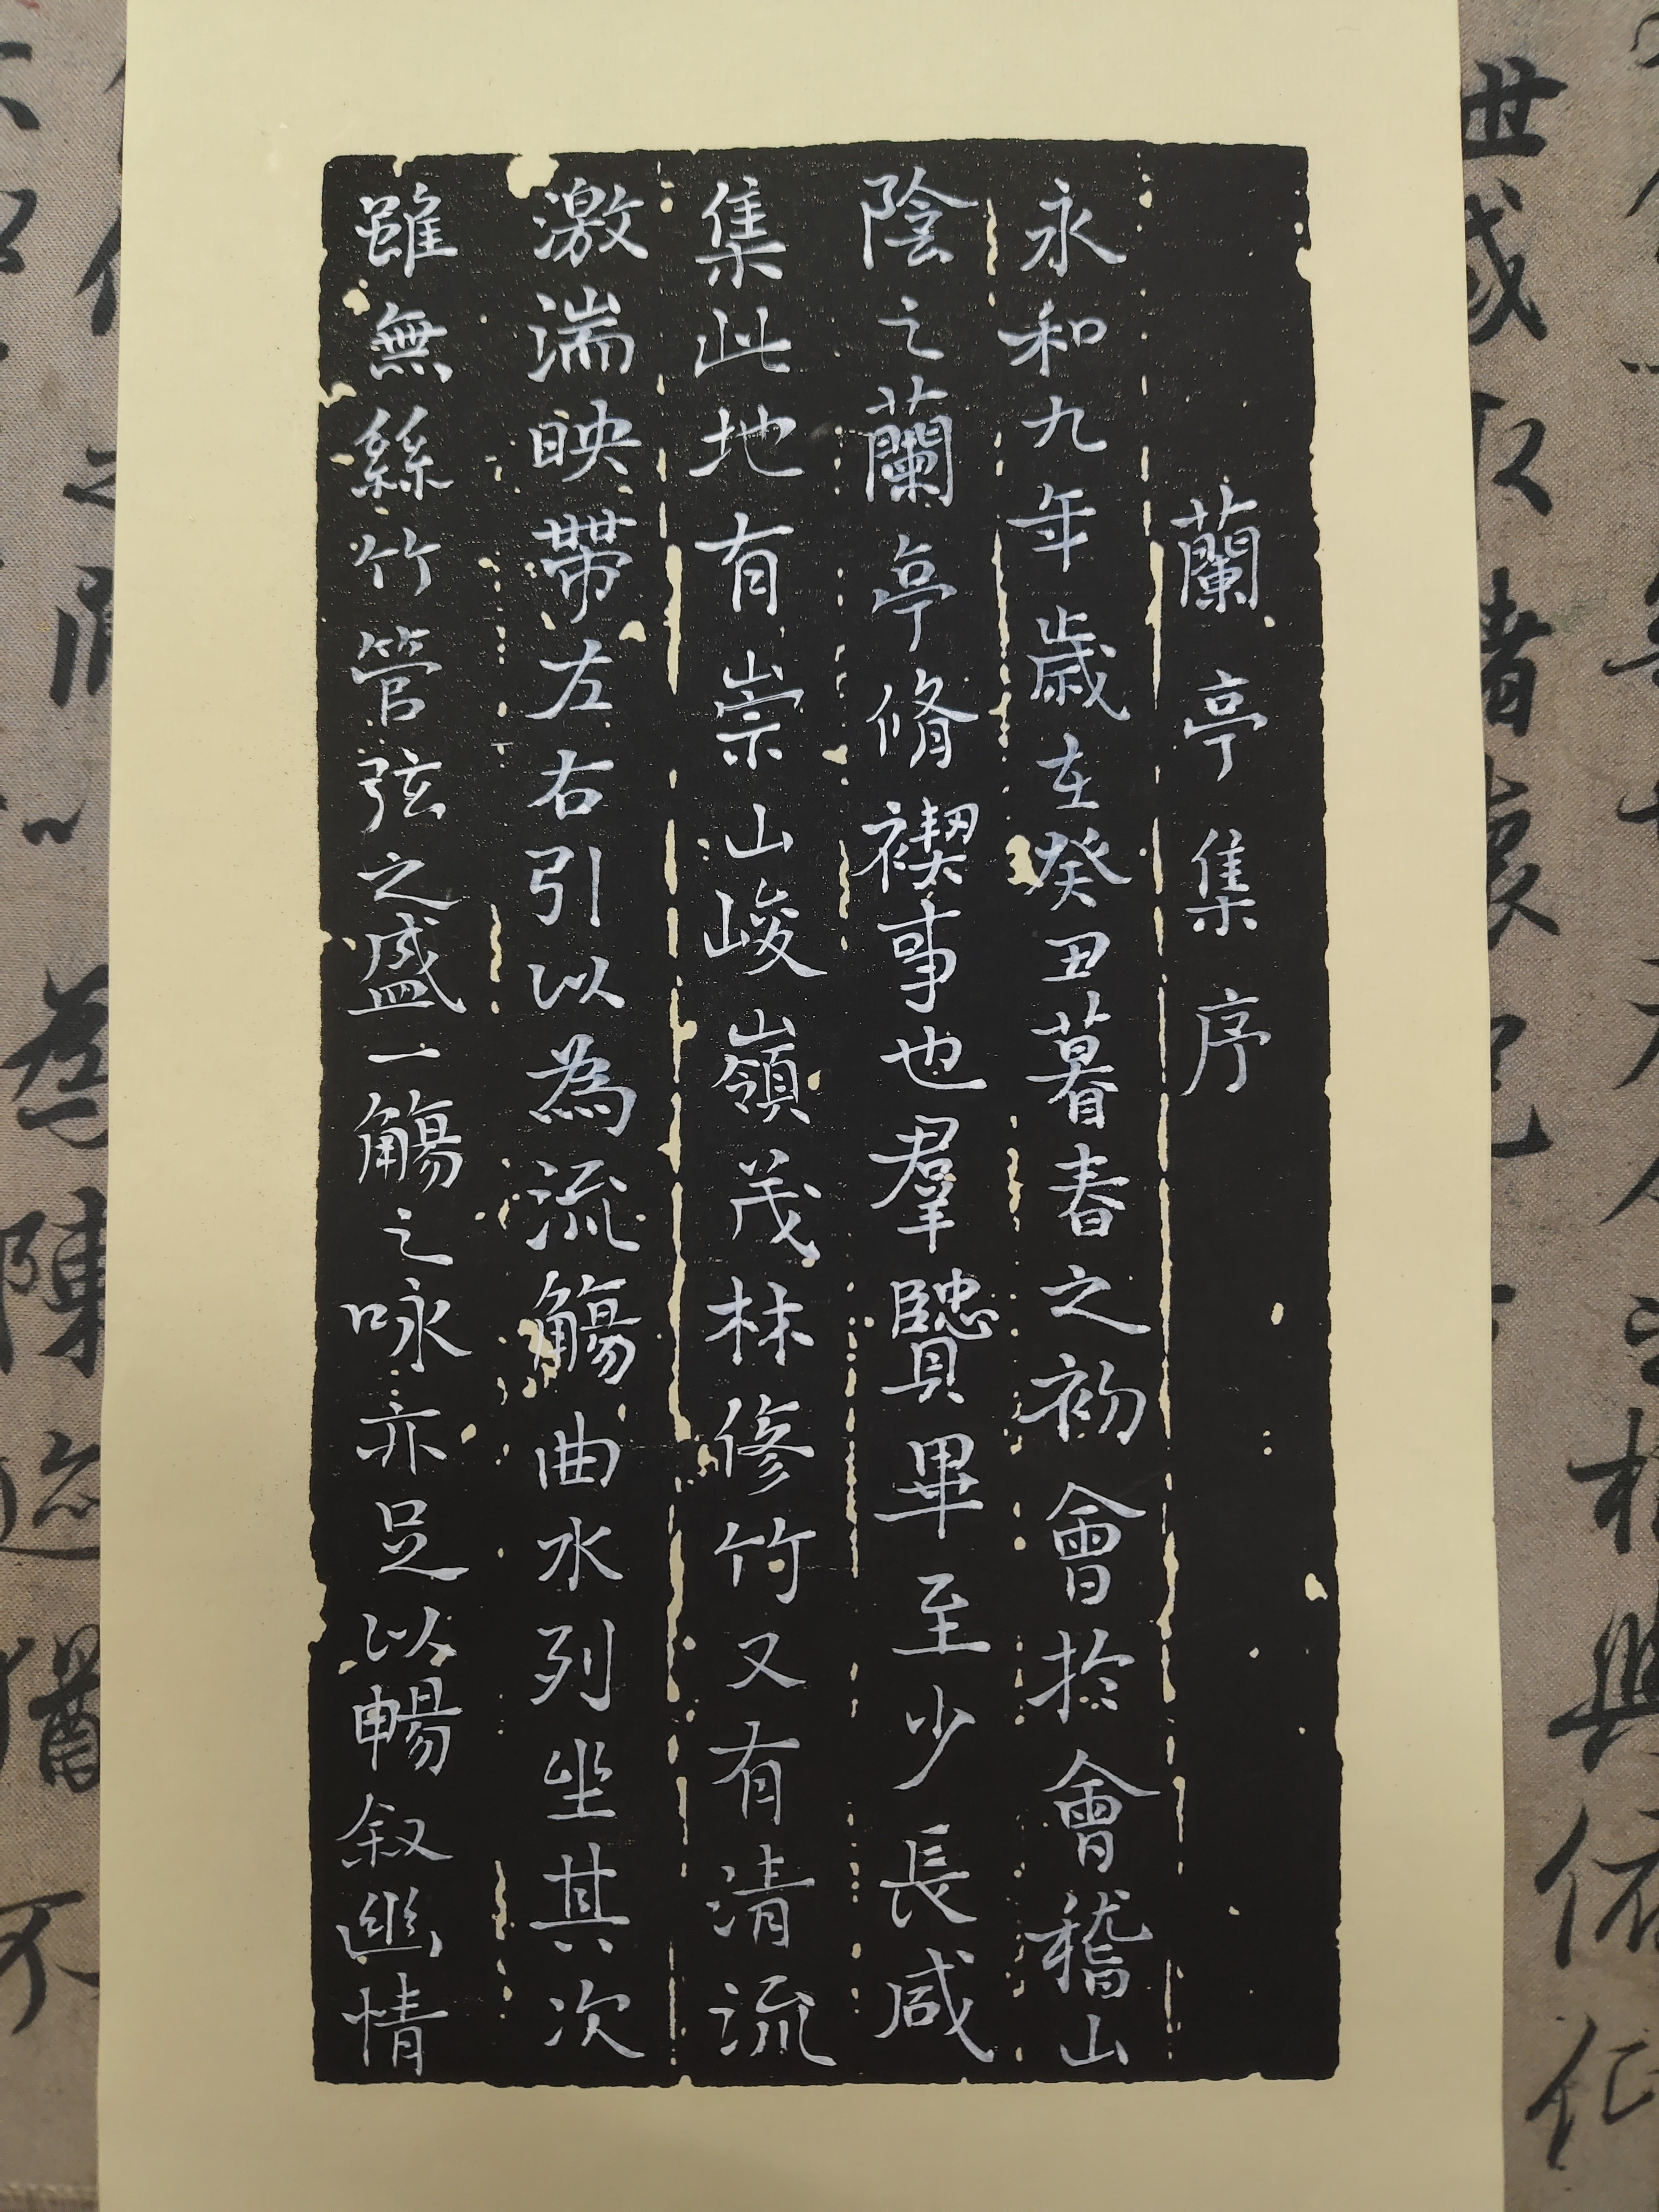 蘭亭集序
永和九年歲在癸丑暮春之初會扵會稽山
陰之蘭亭脩禊事也羣賢畢至少長咸
集此地有崇山峻嶺茂林修竹又有清流
激湍映帶左右引以為流觴曲水列坐其次
雖無絲竹管弦之盛一觴之咏亦足以暢叙幽情